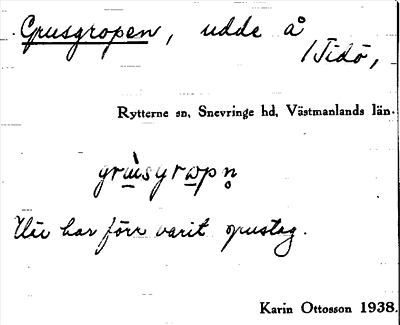 Grusgropen, udde å
Tidö,
Rytterne sn, Snevringe hd, Västmanlands län.
Här har förr varit grustag.
Karin Ottosson 1938.